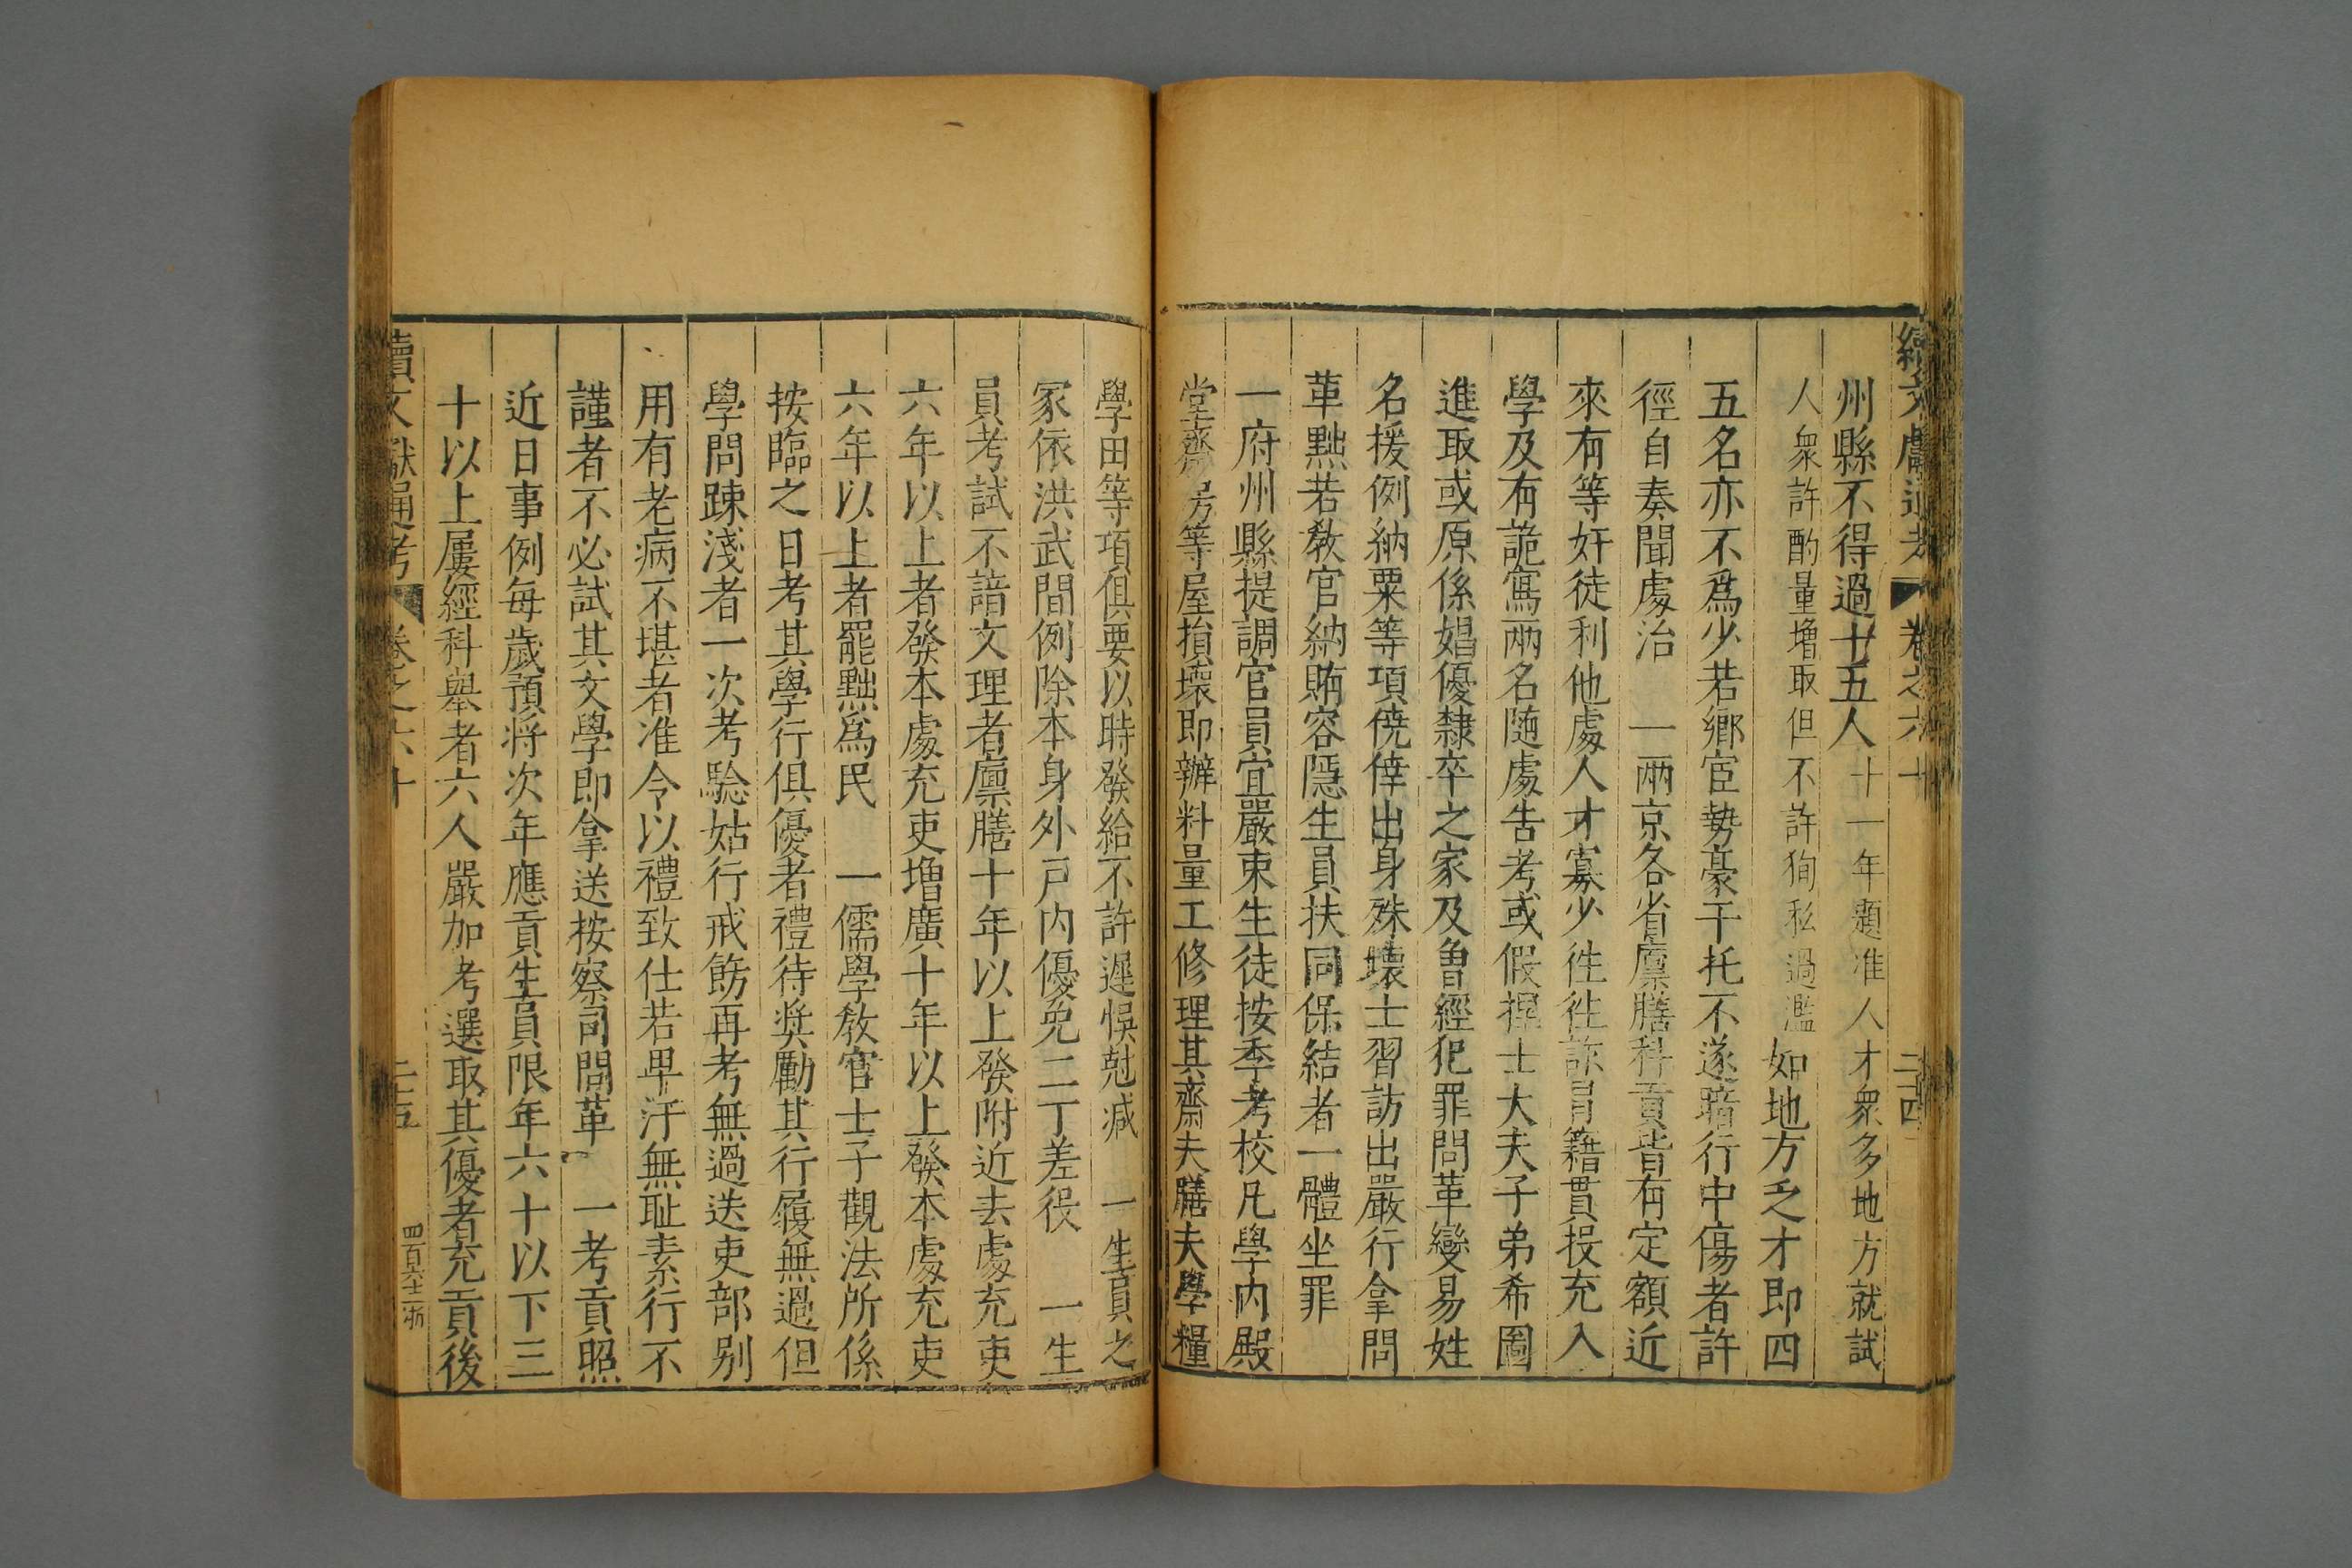 續文獻通考 卷之六十 二十四
州縣不得過十五人十一年題准人才衆多地方就試
人衆許酌量增取但不許狥私過濫如地方乏才即四
五名亦不爲少若鄉宦勢豪干托不遂暗行中傷者許
徑自奏聞處治 一兩京各省廩膳科貢皆有定額近
來有等奸徒利他處人才寡少徃徃詐冒籍貫投充入
學及有詭寫兩名隨處告考或假捏士大夫子弟希圖
進取或原係娼優隸卒之家及曾經犯罪問革變易姓
名援例納粟等項僥倖出身殊壞士習訪出嚴行拿問
革黜若教官納賄容隱生員扶同保結者一體坐罪
一府州縣提調官員宜嚴束生徒按季考校凡學內殿
堂齋房等屋損壞即辦料量工修理其齋夫膳夫學糧
學田等項俱要以時發給不許遲悞尅減 一生員之
家依洪武間例除本身外戶內優免二丁差役 一生
員考試不諳文理者廩膳十年以上發附近去處充吏
六年以上者發本處充吏增廣十年以上發本處充吏
六年以上者罷黜爲民 一儒學教官士子觀法所係
按臨之日考其學行俱優者禮待奬勵其行履無過但
學問踈淺者一次考驗姑行戒飭再考無過送吏部别
用有老病不堪者准令以禮致仕若卑汙無耻素行不
謹者不必試其文學即拿送按察司問革 一考貢照
近日事例每歲預將次年應貢生員限年六十以下三
十以上屢經科舉者六人嚴加考選取其優者充貢後
續文獻通考 卷之六十 二十五